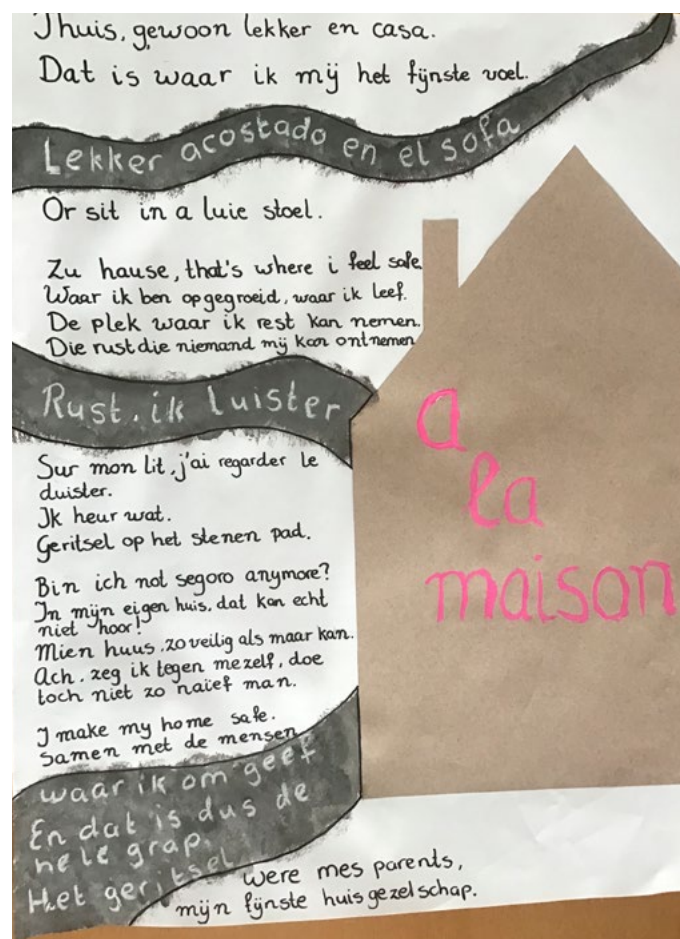 Thuis, gewoon lekker en casa.
Dat is waar ik mij het fijnste voel.
Lekker acostado en el sofa
Or sit in a luie stoel.
Zu hause, that's where i feel safe
Waar ik ben opgegroeid, waar ik leef.
De plek waar ik rest kan nemen.
Die rust die niemand mij kan ontnemen
Rust, ik luister
Sur mon lit, j'ai regarder le
duister.
Ik heur wat.
Geritsel op het stenen pad.
Bin ich not segoro anymore?
In mijn eigen huis, dat kan echt
niet hoor!
Mien huus, zo veilig als maar kan.
Ach, zeg ik tegen mezelf, doe
toch niet zo naïef man.
I make my home safe.
Samen met de mensen
waar ik om geef
En dat is dus de
hele grap.
Het geritsel
were mes parents,
mijn fijnste huisgezelschap.
a
la
maison